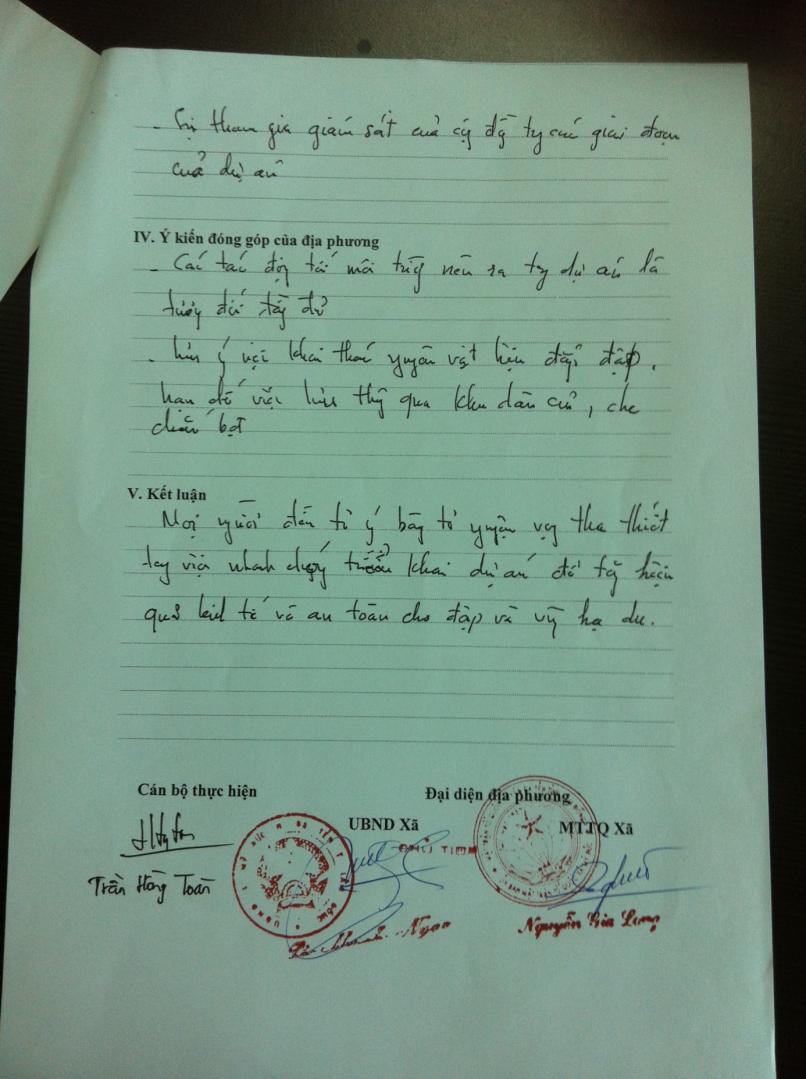 - Sự tham gia giám sát của cộ đồ tr các giai đoạn
của dự án
IV. Ý kiến đóng góp của địa phương
- Các tác độ tới môi trườ nêu ra tr dự án là
tươ đối đầ đủ
- Lưu ý việc khai thác nguyên vật liệu đắp đập,
hạn chế việc lưu thô qua khu dân cư, che
chắn bạt
V. Kết luận
Mọi người đến từ ý bày tỏ nguyện vọ tha thiết
việc nhanh chóng triển khai dự án để tă hiệu
quả kinh tế và an toàn cho đập và vù hạ du.
Cán bộ thực hiện
Đại diện địa phương
UBND Xã
MTTQ Xã
CHỦ TỊCH
Trần Hồng Toàn
Ngọc
Nguyễn Gia Long